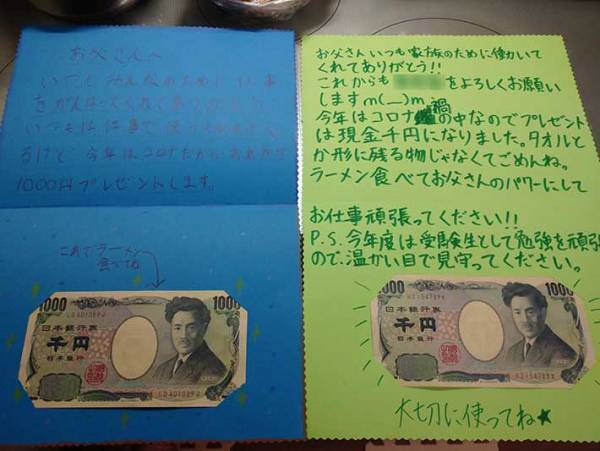 お父さんへ
いつもみんなのために仕事
をがんばってくれてありがとう。
いつもは仕事で使う
けど、今年はコロナだから
1000円プレゼントします。
これでラーメン
食べてね
1000
1000
日本銀行券
千円
日本銀行
お父さんいつも家族のために働いて
くれてありがとう!!
これからも
をよろしくお願い
しますm(__)m
今年はコロナ禍の中なのでプレゼント
は現金千円になりました。タオルと
か形に残る物じゃなくてごめんね。
ラーメン食べてお父さんのパワーにして
お仕事頑張ってください!!
P.S.今年度は受験生として勉強を頑張
ので、温かい目で見守ってください。
1000
1000
日本銀行券
千円
日本銀行
大切に使ってね★